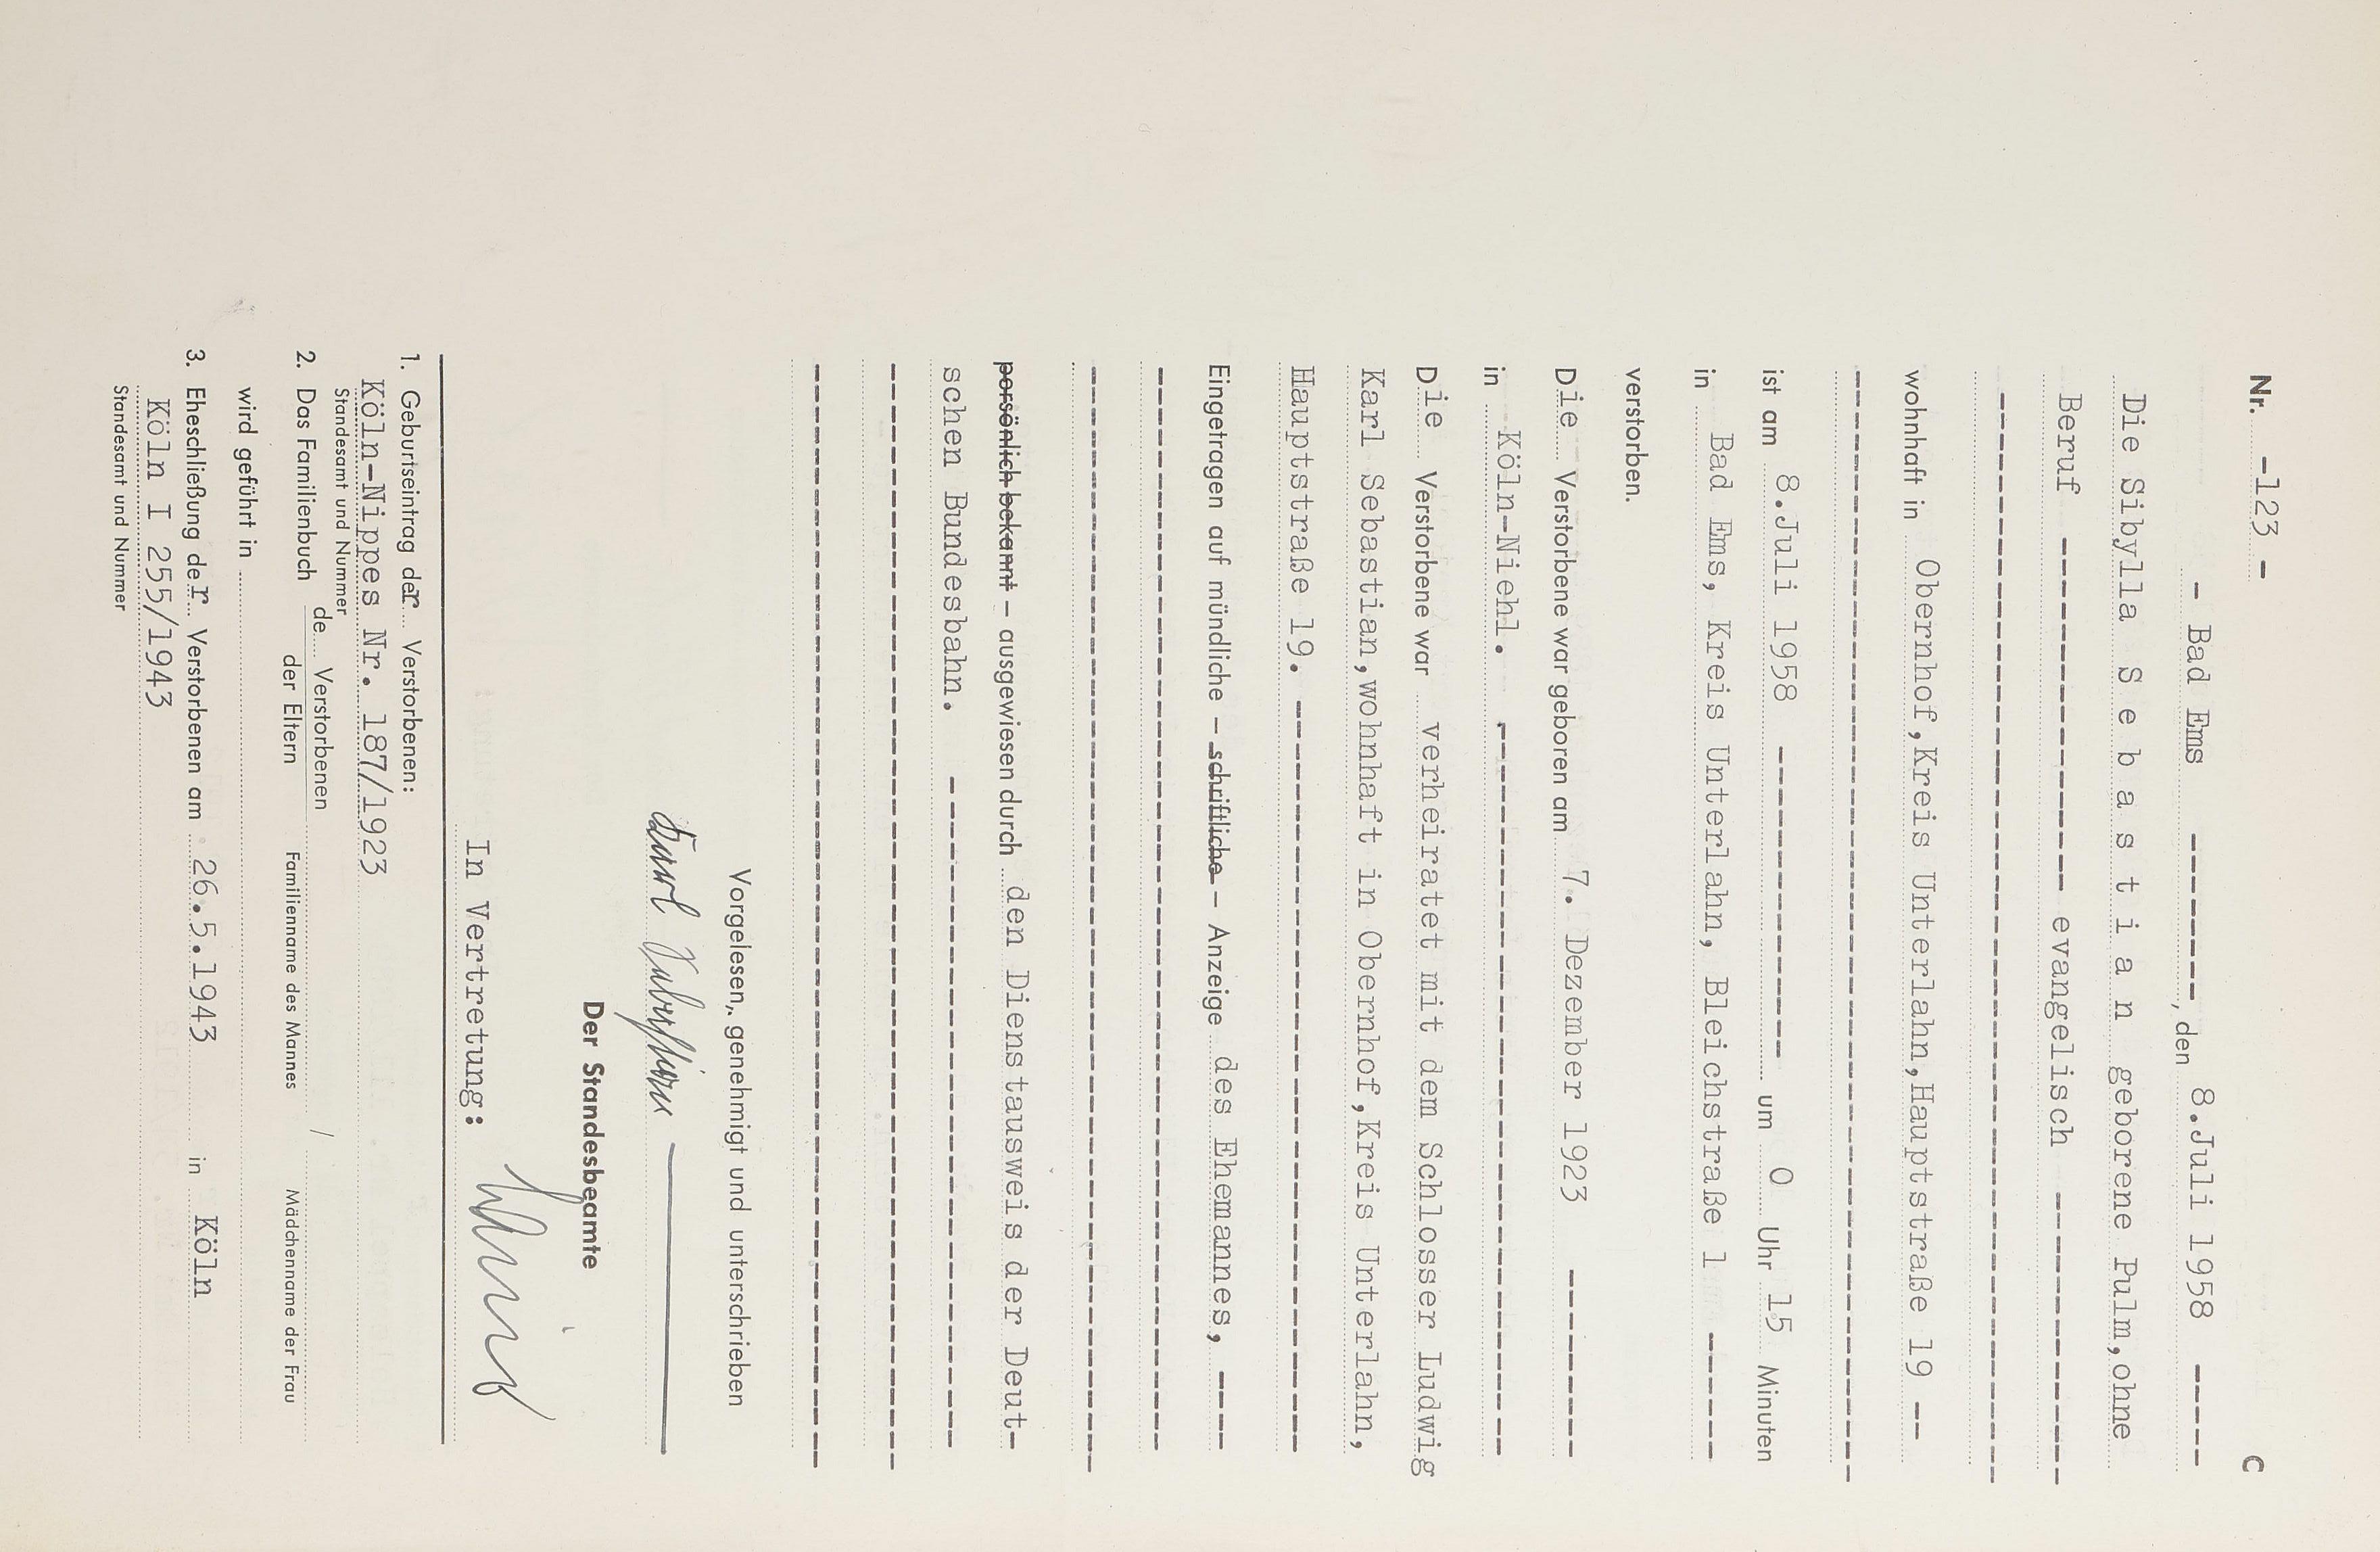 Nr. -123 - C
- Bad Ems -------, den 8.Juli 1958 -----
Die Sibylla S e b a s t i a n geborene Pulm,ohne
Beruf --------------- evangelisch ------------
wohnhaft in Obernhof,Kreis Unterlahn,Hauptstraße 19 --
ist am 8.Juli 1958 ------------- um 0 Uhr 15 Minuten
in Bad Ems, Kreis Unterlahn, Bleichstraße 1 ------
verstorben.
Die Verstorbene war geboren am 7. Dezember 1923 --------
in Köln-Niehl. --------------------------------
Die Verstorbene war verheiratet mit dem Schlosser Ludwig
Karl Sebastian,wohnhaft in Obernhof,Kreis Unterlahn,
Hauptstraße 19. --------------------------------
Eingetragen auf mündliche – schriftliche – Anzeige des Ehemannes, ----
persönlich bekannt – ausgewiesen durch den Dienstausweis der Deut-
schen Bundesbahn. ----------------------------
Vorgelesen, genehmigt und unterschrieben
Karl Sebastian
Der Standesbeamte
In Vertretung:
1. Geburtseintrag der Verstorbenen:
Köln-Nippes Nr. 187/1923
Standesamt und Nummer
2. Das Familienbuch de Verstorbenen /
der Eltern Familienname des Mannes Mädchenname der Frau
wird geführt in
3. Eheschließung der Verstorbenen am 26.5.1943 in Köln
Köln I 255/1943
Standesamt und Nummer